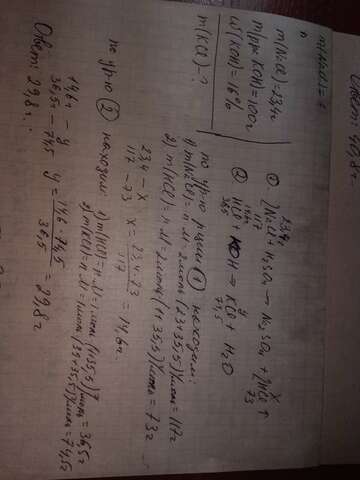 m(NaCl) = ?
m(NaCl) = 23,4г
m(р-ра KOH) = 100г
ω(KOH) = 16%
m(KCl) - ?
23,4 x
① 2NaCl + H₂SO₄ → Na₂SO₄ + 2HCl ↑
117 73
14,6г y
② HCl + KOH → KCl + H₂O
36,5 74,5
по ур-ю ① находим:
1) m(NaCl) = n·M = 2моль·(23+35,5)г/моль = 117г
2) m(HCl) = n·M = 2моль·(1+35,5)г/моль = 73г
23,4 - x
117 - 73 x = 23,4·73 / 117 = 14,6г.
по ур-ю ② находим: 1) m(HCl) = n·M = 1моль·(1+35,5)г/моль = 36,5г
2) m(KCl) = n·M = 1моль·(39+35,5)г/моль = 74,5г
14,6г - y
36,5 - 74,5 y = 14,6·74,5 / 36,5 = 29,8г
Ответ: 29,8г.